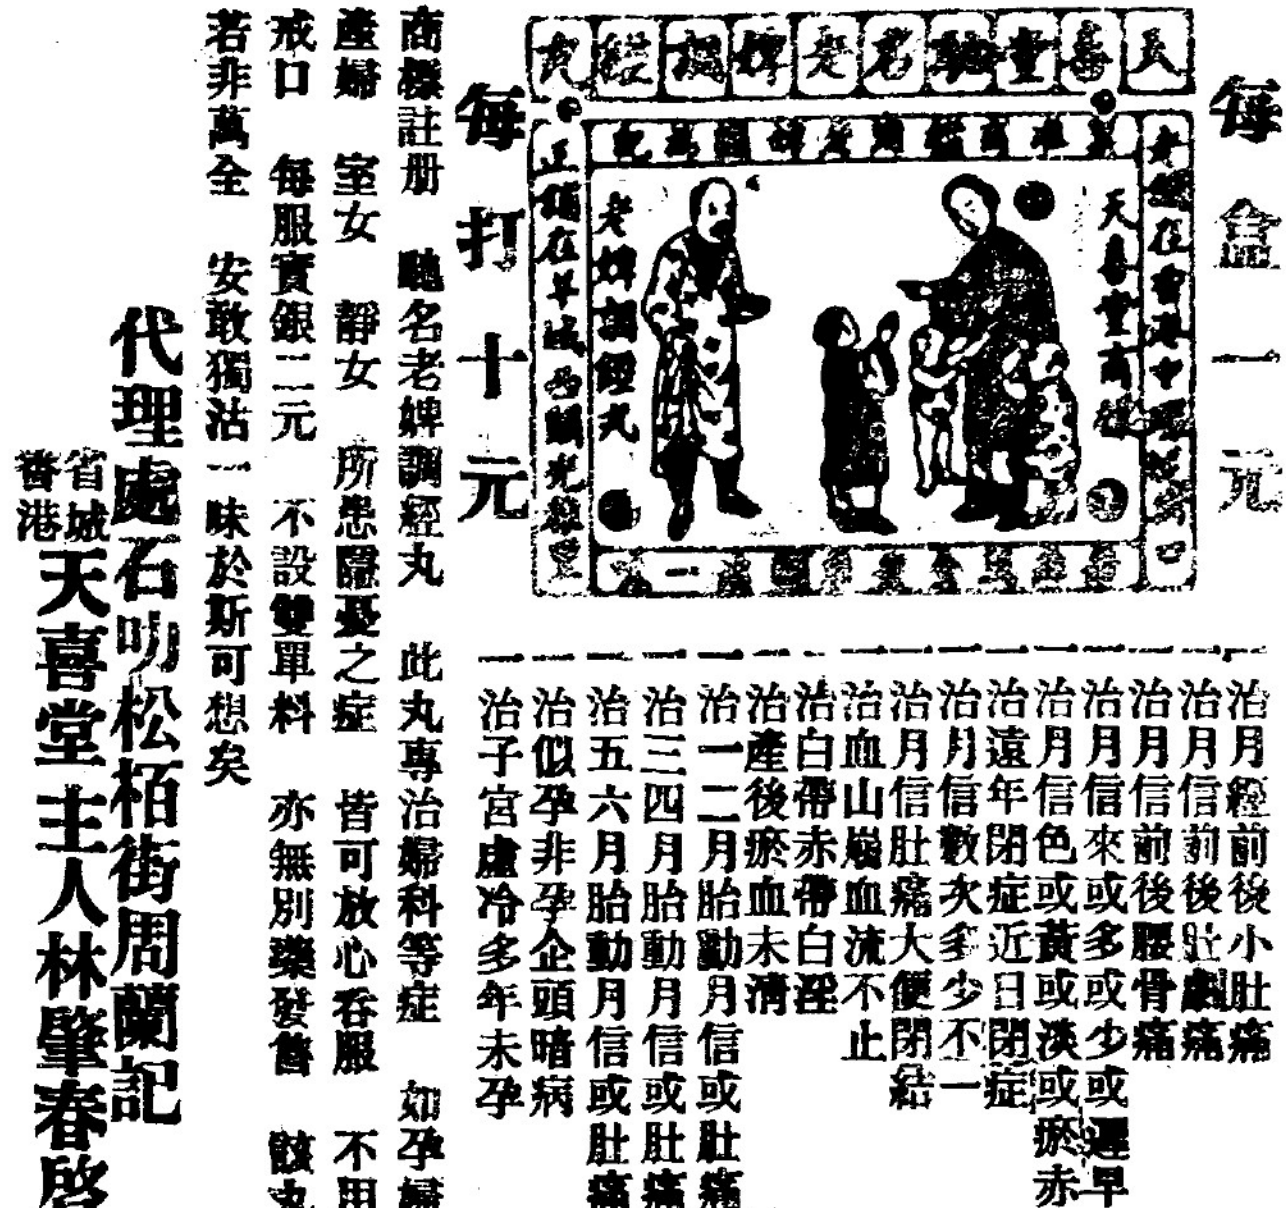 每盒一元
天喜堂馳名老婢調經丸
天喜堂商標
老婢調經丸
正舖在羊城西關光雅里
每打十元
一治月經前後小肚痛
一治月信前後肚劇痛
一治月信前後腰骨痛
一治月信來或多或少或遲早
一治月信色或黃或淡或瘀赤
一治遠年閉症近日閉症
一治月信數次多少不一
一治月信肚痛大便閉結
一治血山崩血流不止
一治白帶赤帶白淫
一治產後瘀血未清
一治一二月胎動月信或肚痛
一治三四月胎動月信或肚痛
一治五六月胎動月信或肚痛
一治似孕非孕企頭暗病
一治子宮虛冷多年未孕
商標註册　馳名老婢調經丸　此丸專治婦科等症　如孕婦
產婦　室女　靜女　所患隱憂之症　皆可放心吞服　不用
戒口　每服實銀二元　不設雙單料　亦無別藥發售　該丸
若非萬全　安敢獨沽一味於斯可想矣
代理處石叻松栢街周蘭記
省城
香港
天喜堂主人林肇春啓